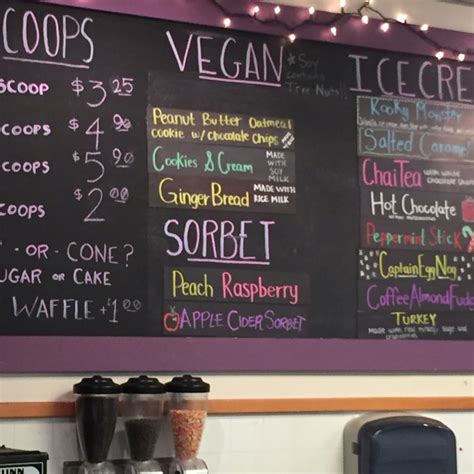 COOPS
SCOOP $3.25
COOPS $4.90
COOPS $5.90
COOPS $2.00
- OR - CONE?
UGAR OR CAKE
WAFFLE +1.00
VEGAN
* Soy
contains
Tree Nuts!
Peanut Butter Oatmeal
cookie w/ Chocolate Chips
Cookies & Cream MADE WITH SOY MILK
GingerBread MADE WITH RICE MILK
SORBET
Peach Raspberry
APPLE CIDER SORBET
ICECRE
Kooky Monster
Salted Caramel
Chai Tea
Hot Chocolate
Peppermint Stick
Captain Egg Nog
Coffee Almond Fudg
TURKEY
made with real
UNN